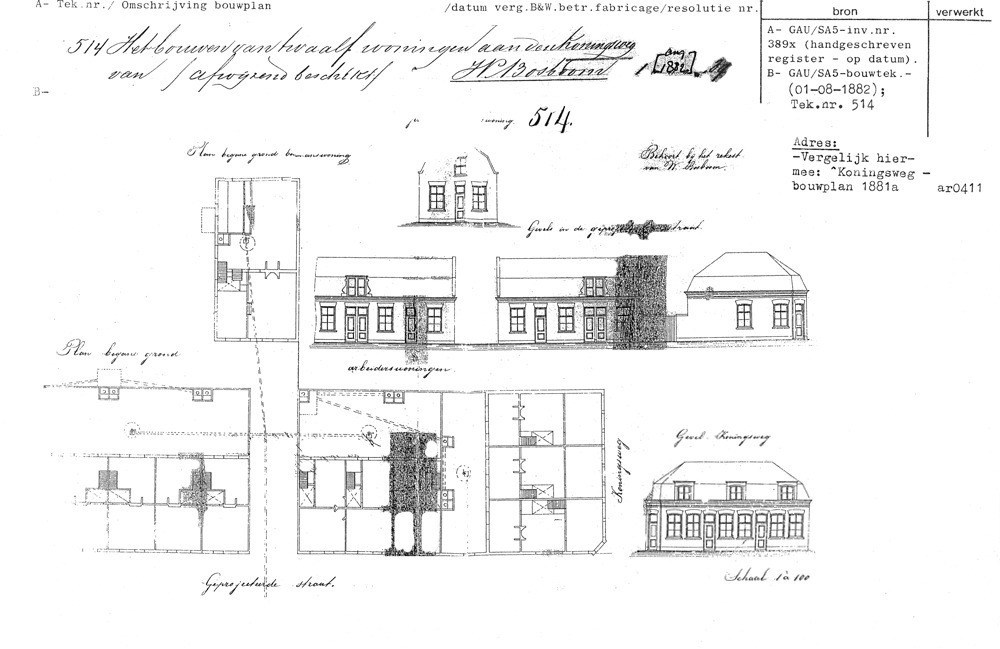 A- Tek.nr./ Omschrijving bouwplan
/datum verg.B&W.betr.fabricage/resolutie nr.
bron
verwerkt
514 Het bouwen van twaalf woningen aan den Koningsweg
van / afwijzend beschikt / W Bosboom 1 [aug 1882]
A- GAU/SA5-inv.nr.
389x (handgeschreven
register - op datum).
B- GAU/SA5-bouwtek.-
(01-08-1882);
Tek.nr. 514
B-
woning 514.
Adres:
-Vergelijk hier-
mee: ^Koningsweg -
bouwplan 1881a
ar0411
Plan begane grond bovenwoning
Behoort bij het rekest
van W. Bosboom.
Gevels in de straat.
Plan begane grond
arbeiderswoningen
Koningsweg
Gevel Koningsweg
Geprojecteerde straat.
Schaal 1 à 100